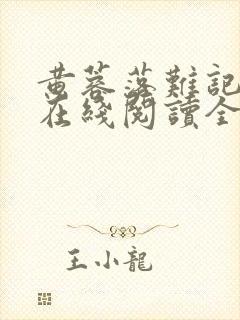 黄蓉落難記
在綫閱讀全
王小龍